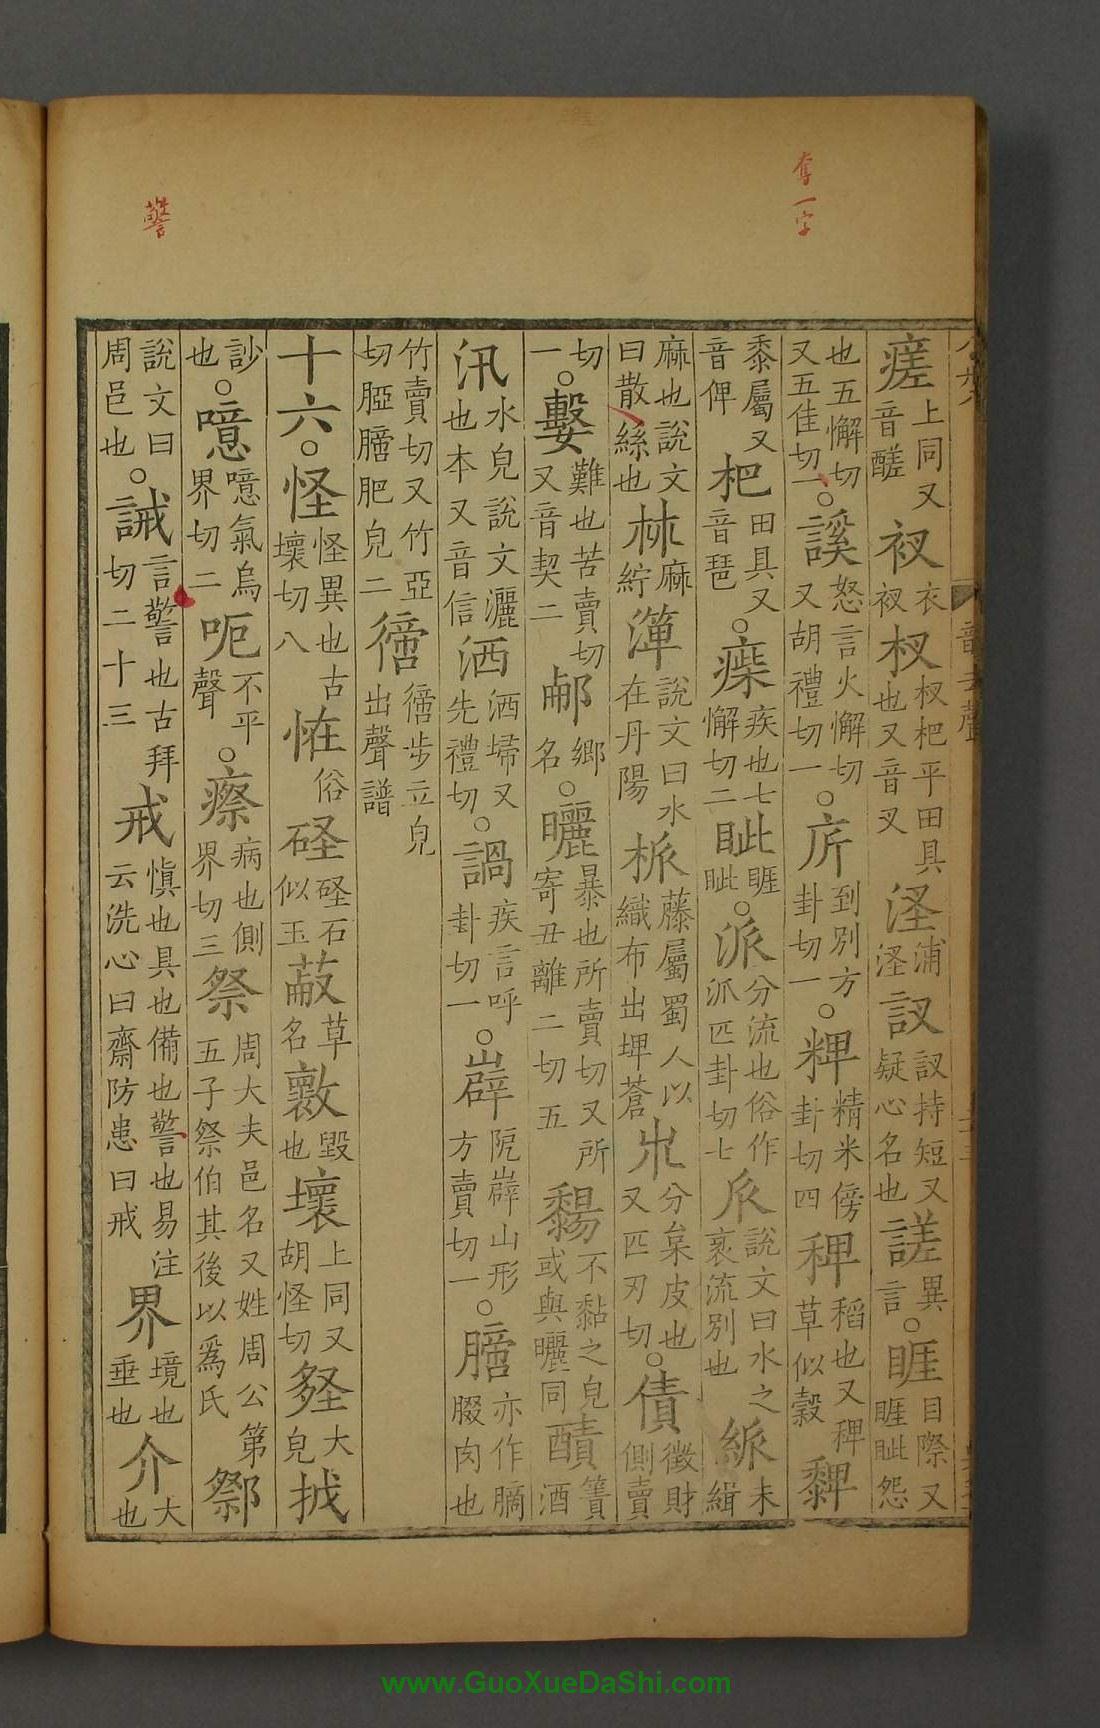 奪一字
警
瘥上同又音瘥衩衣衩杈杈杷平田具也又音叉洷浦洷訍訍持短又疑心名也䜕異言○睚目際又睚眦怨
也五懈切又五佳切一○謑怒言火懈切又胡禮切一○庍到別方卦切一○粺精米傍卦切四稗稻也又稗草似穀䵗
黍屬又音俾杷田具又音琶○㾹疾也七懈切二眦睚眦○派分流也俗作派匹卦切七𠂢說文曰水之衺流別也紙未緝
麻也說文曰散絲也𣏟麻紵渒說文曰水在丹陽𣔪藤屬蜀人以織布出埤蒼𣎳分枲皮也又匹刃切○債徵財側賣
切一○㜘難也苦賣切又音契二䣌鄉名○曬暴也所賣切又所寄丑離二切五䵘不黏之皃或與曬同䤞簀酒
汛水皃說文灑也本又音信洒洒埽又先禮切○諣疾言呼卦切一○㠔阸㠔山形方賣切一○膪亦作腡腏肉也
竹賣切又竹亞切腛膪肥皃二䙗䙗步立皃出聲譜
十六○怪怪異也古壞切八恠俗硁硁石似玉蒯草名𣀩毀也壞上同又胡怪切㛱大皃㧕
訬也○噫噫氣烏界切二呃不平聲○瘵病也側界切三祭周大夫邑名又姓周公第五子祭伯其後以爲氏鄒
說文曰周邑也○誡言警也古拜切二十三戒愼也具也備也警也易注云洗心曰齋防患曰戒界境也垂也介大也
www.GuoXueDaShi.com